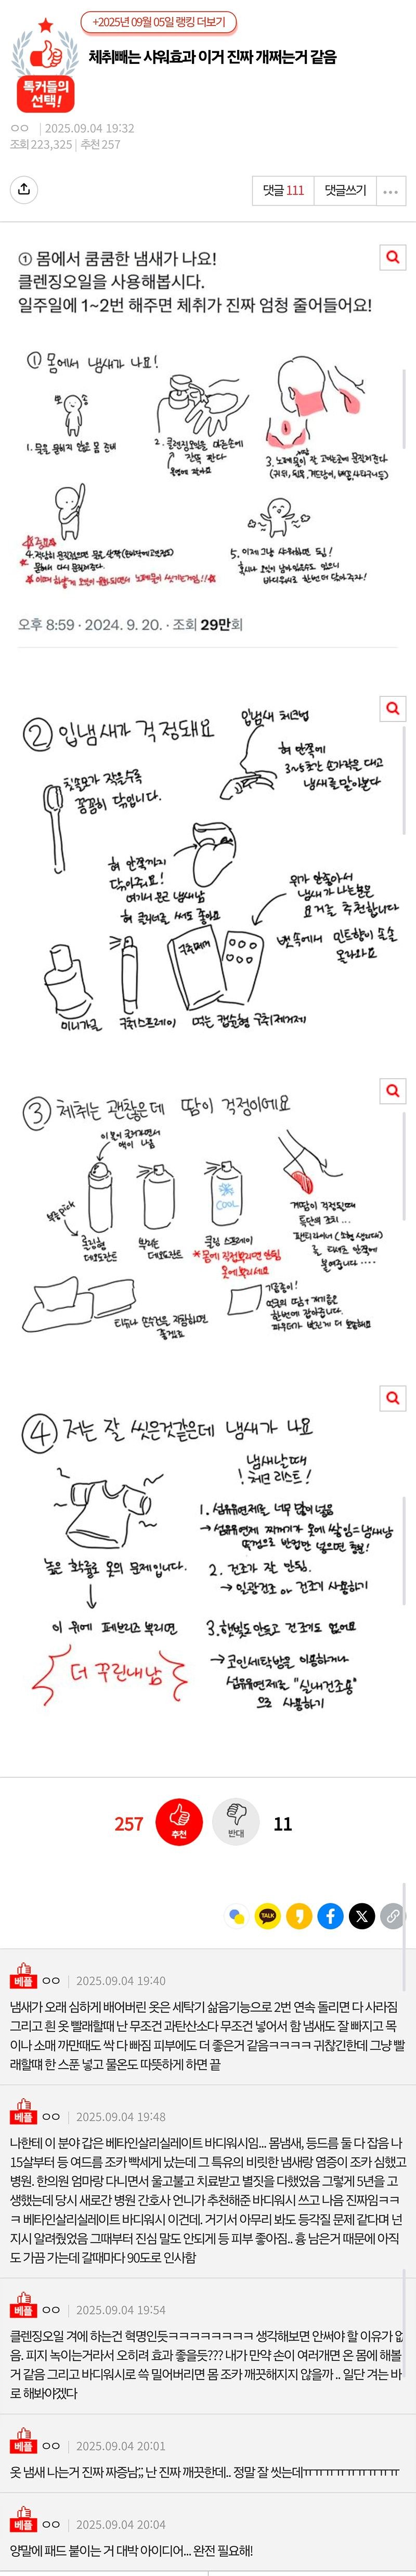 +2025년 09월 05일 랭킹 더보기
톡커들의
선택!
체취빼는 샤워효과 이거 진짜 개쩌는거 같음
ㅇㅇ | 2025.09.04 19:32
조회 223,325 | 추천 257
댓글 111 댓글쓰기
① 몸에서 쿰쿰한 냄새가 나요!
클렌징오일을 사용해봅시다.
일주일에 1~2번 해주면 체취가 진짜 엄청 줄어들어요!
① 몸에서 냄새가 나요!
뽀 송
1. 물을 묻히지 않은 몸 준비
2. 클렌징오일을 마른손에
간득 짠다
3. 노폐물이 잘 고이는곳에 문질러준다
★중요★
5. 이제 그냥 샤워하면 됨!
바디워시로 한번더 닦아주자!
오후 8:59 · 2024. 9. 20. · 조회 29만회
② 입냄새가 걱정돼요
입냄새 체크법
혀 안쪽에
3~5초간 손가락을 대고
냄새를 맡아본다
칫솔모가 작을수록
꼼꼼히 닦입니다.
혀 안쪽까지
닦아주세요!
여기서 모든 냄새남
혀 클리너를 써도 좋아요
위가 안좋아서
냄새가 나는분은
요거를 추천합니다
뱃속에서 민트향이 솔솔
올라와요
구취제거
미니가글
구취스프레이
먹는 캡슐형 구취제거제
③ 체취는 괜찮은데 땀이 걱정이에요
롤링형
데오드란트
뿌리는
데오드란트
COOL
쿨링 스프레이
*몸에 직접뿌리면 안됨
옷에뿌리세요
겨땀이 걱정될때
특단의 조치...
팬티라이너 (소형 생리대)
를 티셔츠 안쪽에
붙여줍니다....
티슈나 손수건을 지참하면
좋겠죠
기름종이!
한번에 잡아줍니다.
④ 저는 잘 씻은것같은데 냄새가 나요
냄새날때
체크 리스트!
높은 확률로 옷의 문제입니다.
이 위에 페브리즈 뿌리면
더 꾸린내남
1. 섬유유연제를 너무 많이넣음
→ 섬유유연제 찌꺼기가 옷에 쌓임=냄새남
뚜껑으로 반컵만 넣으면 충분!
2. 건조가 잘 안됨.
→ 일광건조 or 건조기 사용하기
3. 햇빛도 안들고 건조기도 없어요
→ 코인세탁방을 이용하거나
섬유유연제를 "실내건조용"
으로 사용하기
257 추천 반대 11
TALK
베플 ㅇㅇ | 2025.09.04 19:40
냄새가 오래 심하게 배어버린 옷은 세탁기 삶음기능으로 2번 연속 돌리면 다 사라짐
그리고 흰 옷 빨래할때 난 무조건 과탄산소다 무조건 넣어서 함 냄새도 잘 빠지고 목
이나 소매 까만때도 싹 다 빠짐 피부에도 더 좋은거 같음ㅋㅋㅋㅋ 귀찮긴한데 그냥 빨
래할때 한 스푼 넣고 물온도 따뜻하게 하면 끝
베플 ㅇㅇ | 2025.09.04 19:48
나한테 이 분야 갑은 베타인살리실레이트 바디워시임... 몸냄새, 등드름 둘 다 잡음 나
15살부터 등 여드름 조카 빡세게 났는데 그 특유의 비릿한 냄새랑 염증이 조카 심했고
병원. 한의원 엄마랑 다니면서 울고불고 치료받고 별짓을 다했었음 그렇게 5년을 고
생했는데 당시 새로간 병원 간호사 언니가 추천해준 바디워시 쓰고 나음 진짜임ㅋㅋ
ㅋ 베타인살리실레이트 바디워시 이건데. 거기서 아무리 봐도 등각질 문제 같다며 넌
지시 알려줬었음 그때부터 진심 말도 안되게 등 피부 좋아짐.. 흉 남은거 때문에 아직
도 가끔 가는데 갈때마다 90도로 인사함
베플 ㅇㅇ | 2025.09.04 19:54
클렌징오일 겨에 하는건 혁명인듯ㅋㅋㅋㅋㅋㅋㅋㅋ 생각해보면 안써야 할 이유가 없
음. 피지 녹이는거라서 오히려 효과 좋을듯??? 내가 만약 손이 여러개면 온 몸에 해볼
거 같음 그리고 바디워시로 쓱 밀어버리면 몸 조카 깨끗해지지 않을까 .. 일단 겨는 바
로 해봐야겠다
베플 ㅇㅇ | 2025.09.04 20:01
옷 냄새 나는거 진짜 짜증남;; 난 진짜 깨끗한데.. 정말 잘 씻는데ㅠㅠㅠㅠㅠㅠㅠㅠㅠ
베플 ㅇㅇ | 2025.09.04 20:04
양말에 패드 붙이는 거 대박 아이디어... 완전 필요해!